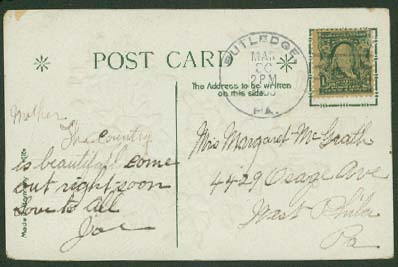 POST CARD
RUTLEDGE,
MAR
2 PM
PA.
The Address to be written
on this side.
Mother
The Country
is beautiful come
out right soon
Love to all
Joe
Made
Mrs Margaret McGrath
4429 Osage Ave
West Phila
Pa